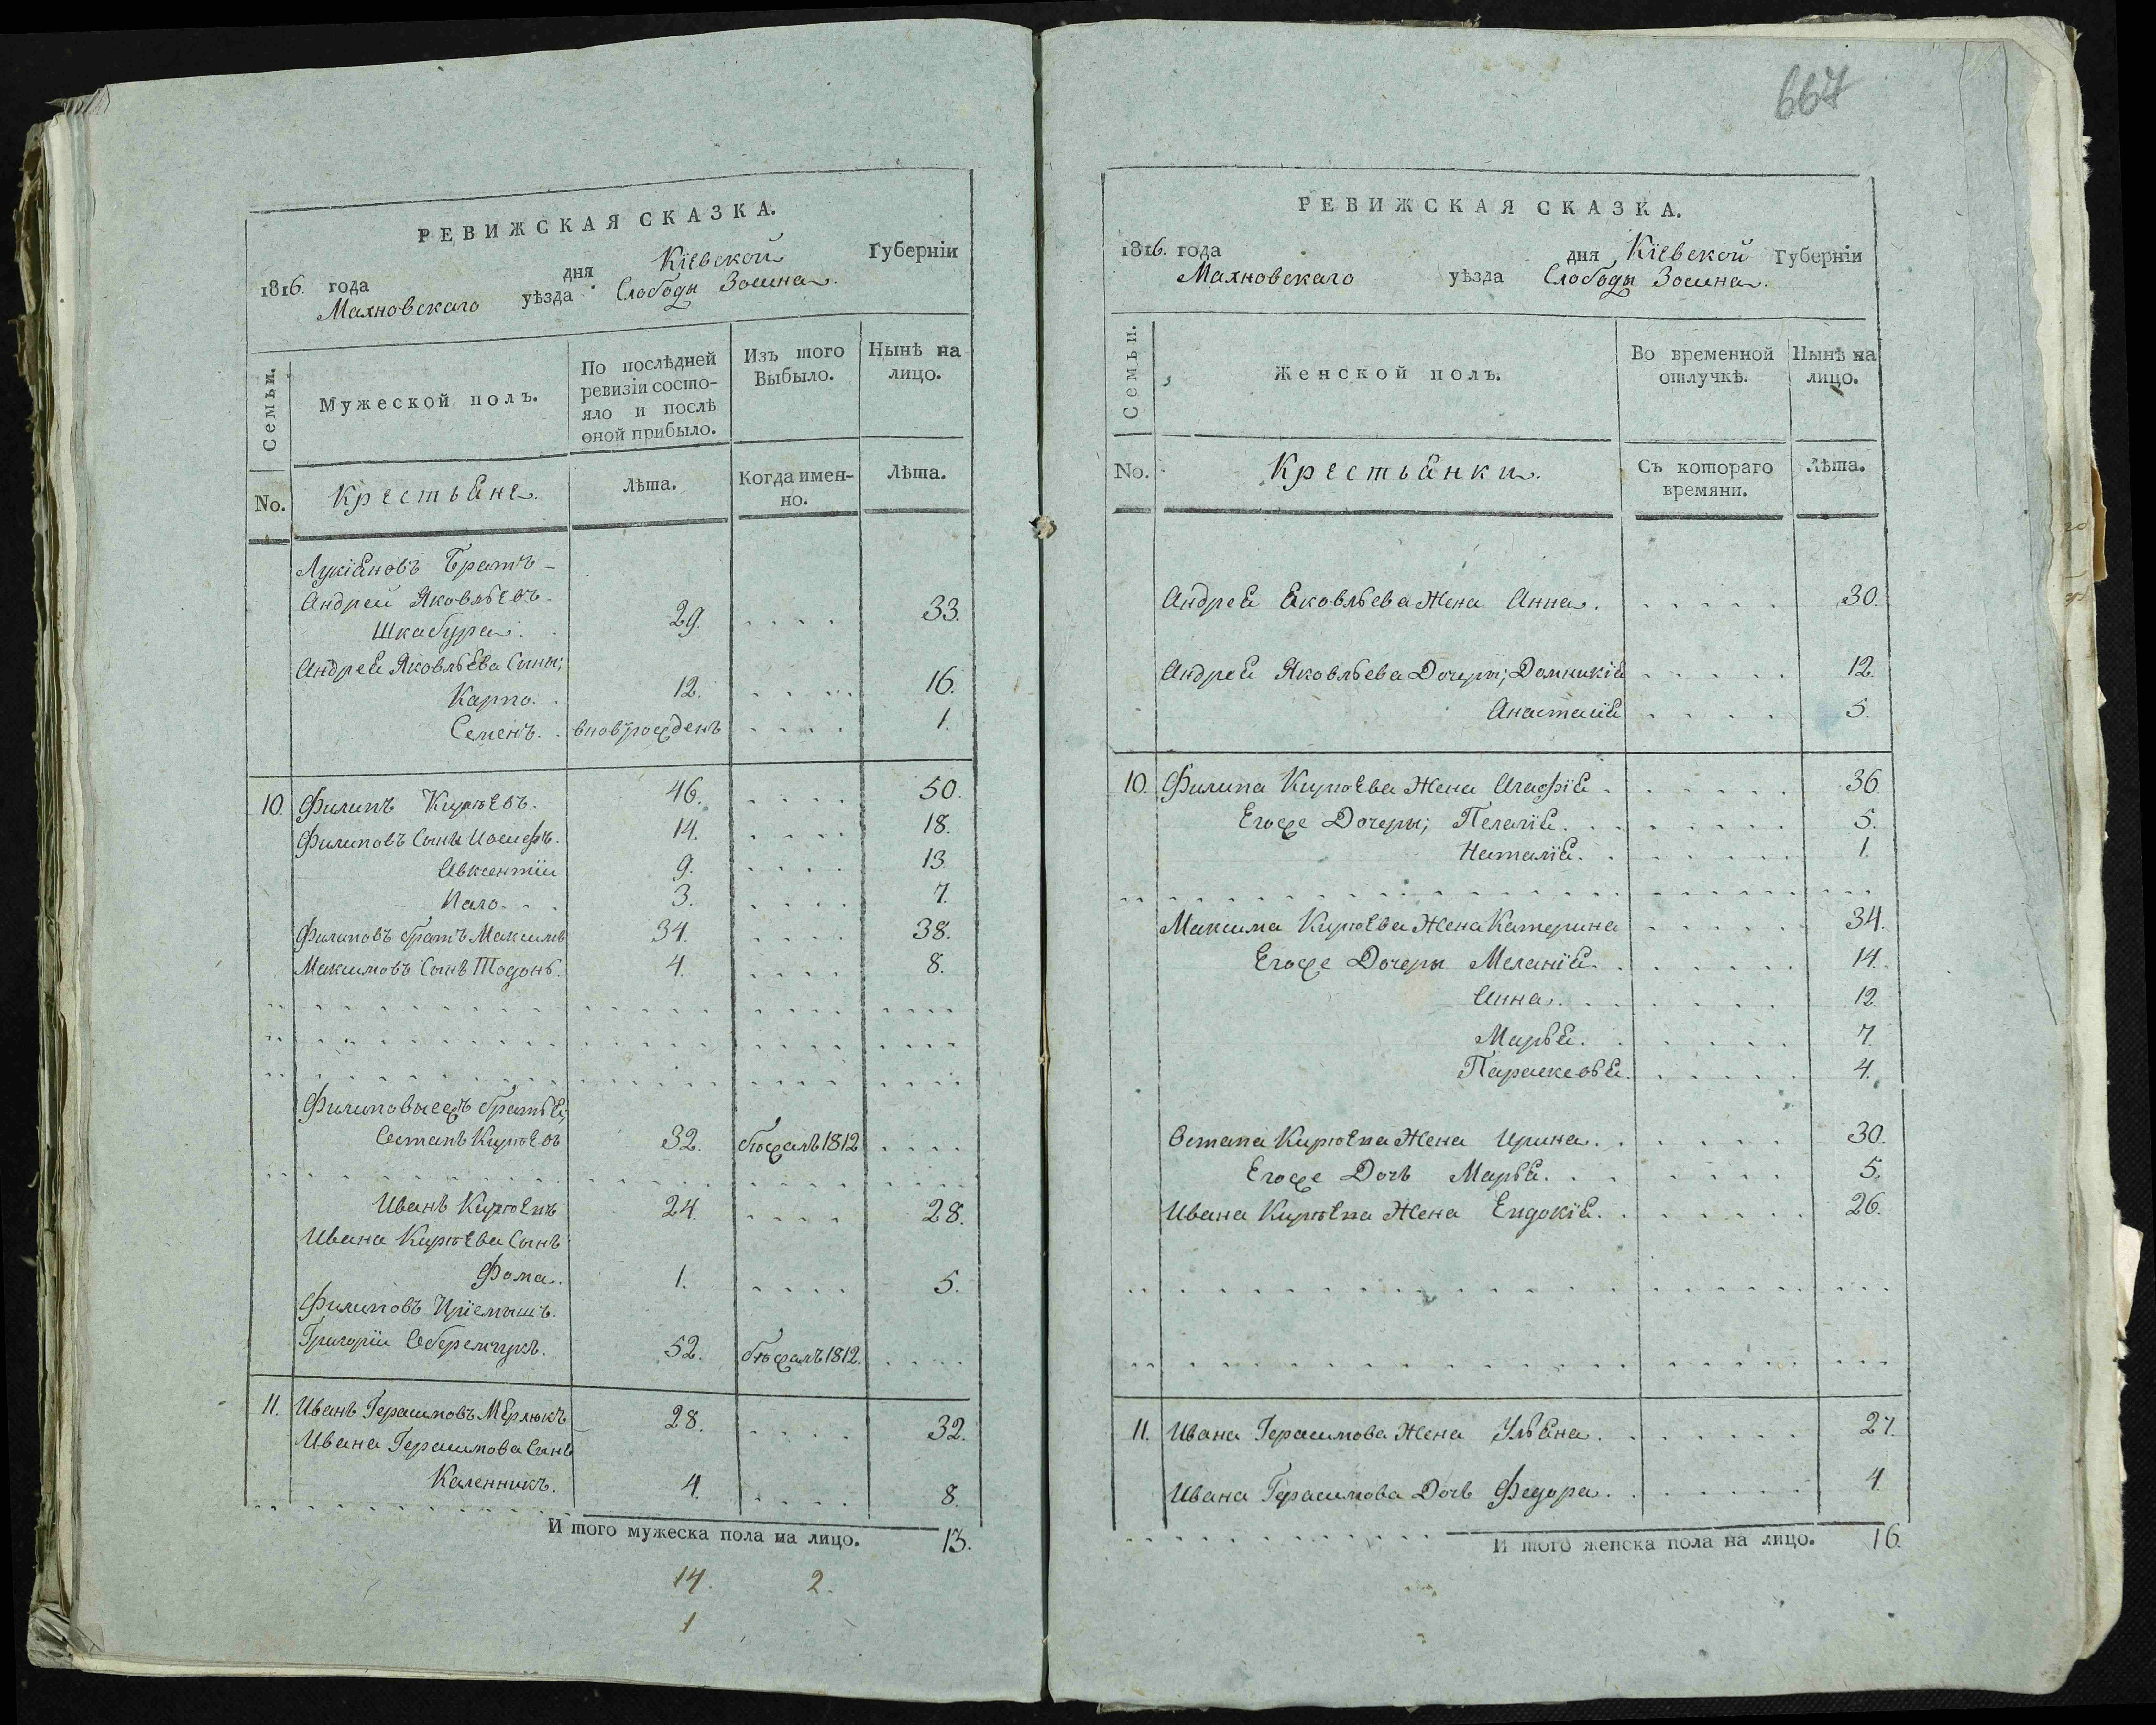 667
РЕВИЖСКАЯ СКАЗКА.
1816. года дня Кіевской Губерніи
Махновскаго уѣзда Слободы Зосина.
Семьи.
Мужеской полъ.
По послѣдней ревизіи состояло и послѣ оной прибыло.
Изъ того Выбыло.
Нынѣ на лицо.
No.
Крестьяне.
Лѣта.
Когда именно.
Лѣта.
Лукіяновъ Братъ
Андрей Яковлевъ
Шкабура. 29. 33.
Андрея Яковлева Сыны;
Карпо. 12. 16.
Семенъ. вновърожденъ 1.
10. Филипъ Кирѣевъ. 46. 50.
Филиповъ Сынъ Иосифъ. 14. 18.
Авксентіи 9. 13
3. 7.
Филиповъ братъ Максимъ 34. 38.
Максимовъ Сынъ Тодонъ. 4. 8.
Филиповыежъ братья;
Остапъ 32. бѣжалъ 1812
Иванъ 24. 28.
Ивана Сынъ
Фома. 1. 5.
Филиповъ Пріемышъ.
Григоріи 52. бѣжалъ 1812.
11. Иванъ Герасимовъ Мерлюкъ 28. 32.
Ивана Герасимова Сынъ
Каленникъ. 4. 8.
И того мужеска пола на лицо. 13.
14. 2.
1
РЕВИЖСКАЯ СКАЗКА.
1816. года дня Кіевской Губерніи
Махновскаго уѣзда Слободы Зосина.
Семьи.
Женской полъ.
Во временной отлучкѣ.
Нынѣ на лицо.
No.
Крестьянки.
Съ котораго времяни.
Лѣта.
Андрея Яковлева Жена Анна. 30.
Андрея Яковлева Дочери; Домникія 12.
Анастасія 5.
10. Филипа Кирѣева Жена Агафія. 36
Егоже Дочеры; Пелагія. 5.
Наталія. 1.
Максима Кирѣева Жена Катерина 34.
Егоже Дочеры Меланія. 14.
Анна. 12.
Марья. 7
Параскевья. 4.
Остапа Жена Ирина. 30.
Егоже Дочь Марья. 5.
Ивана Жена Евдокія. 26.
11. Ивана Герасимова Жена Ульяна. 27.
Ивана Герасимова Дочь Федора. 4.
И того женска пола на лицо. 16.